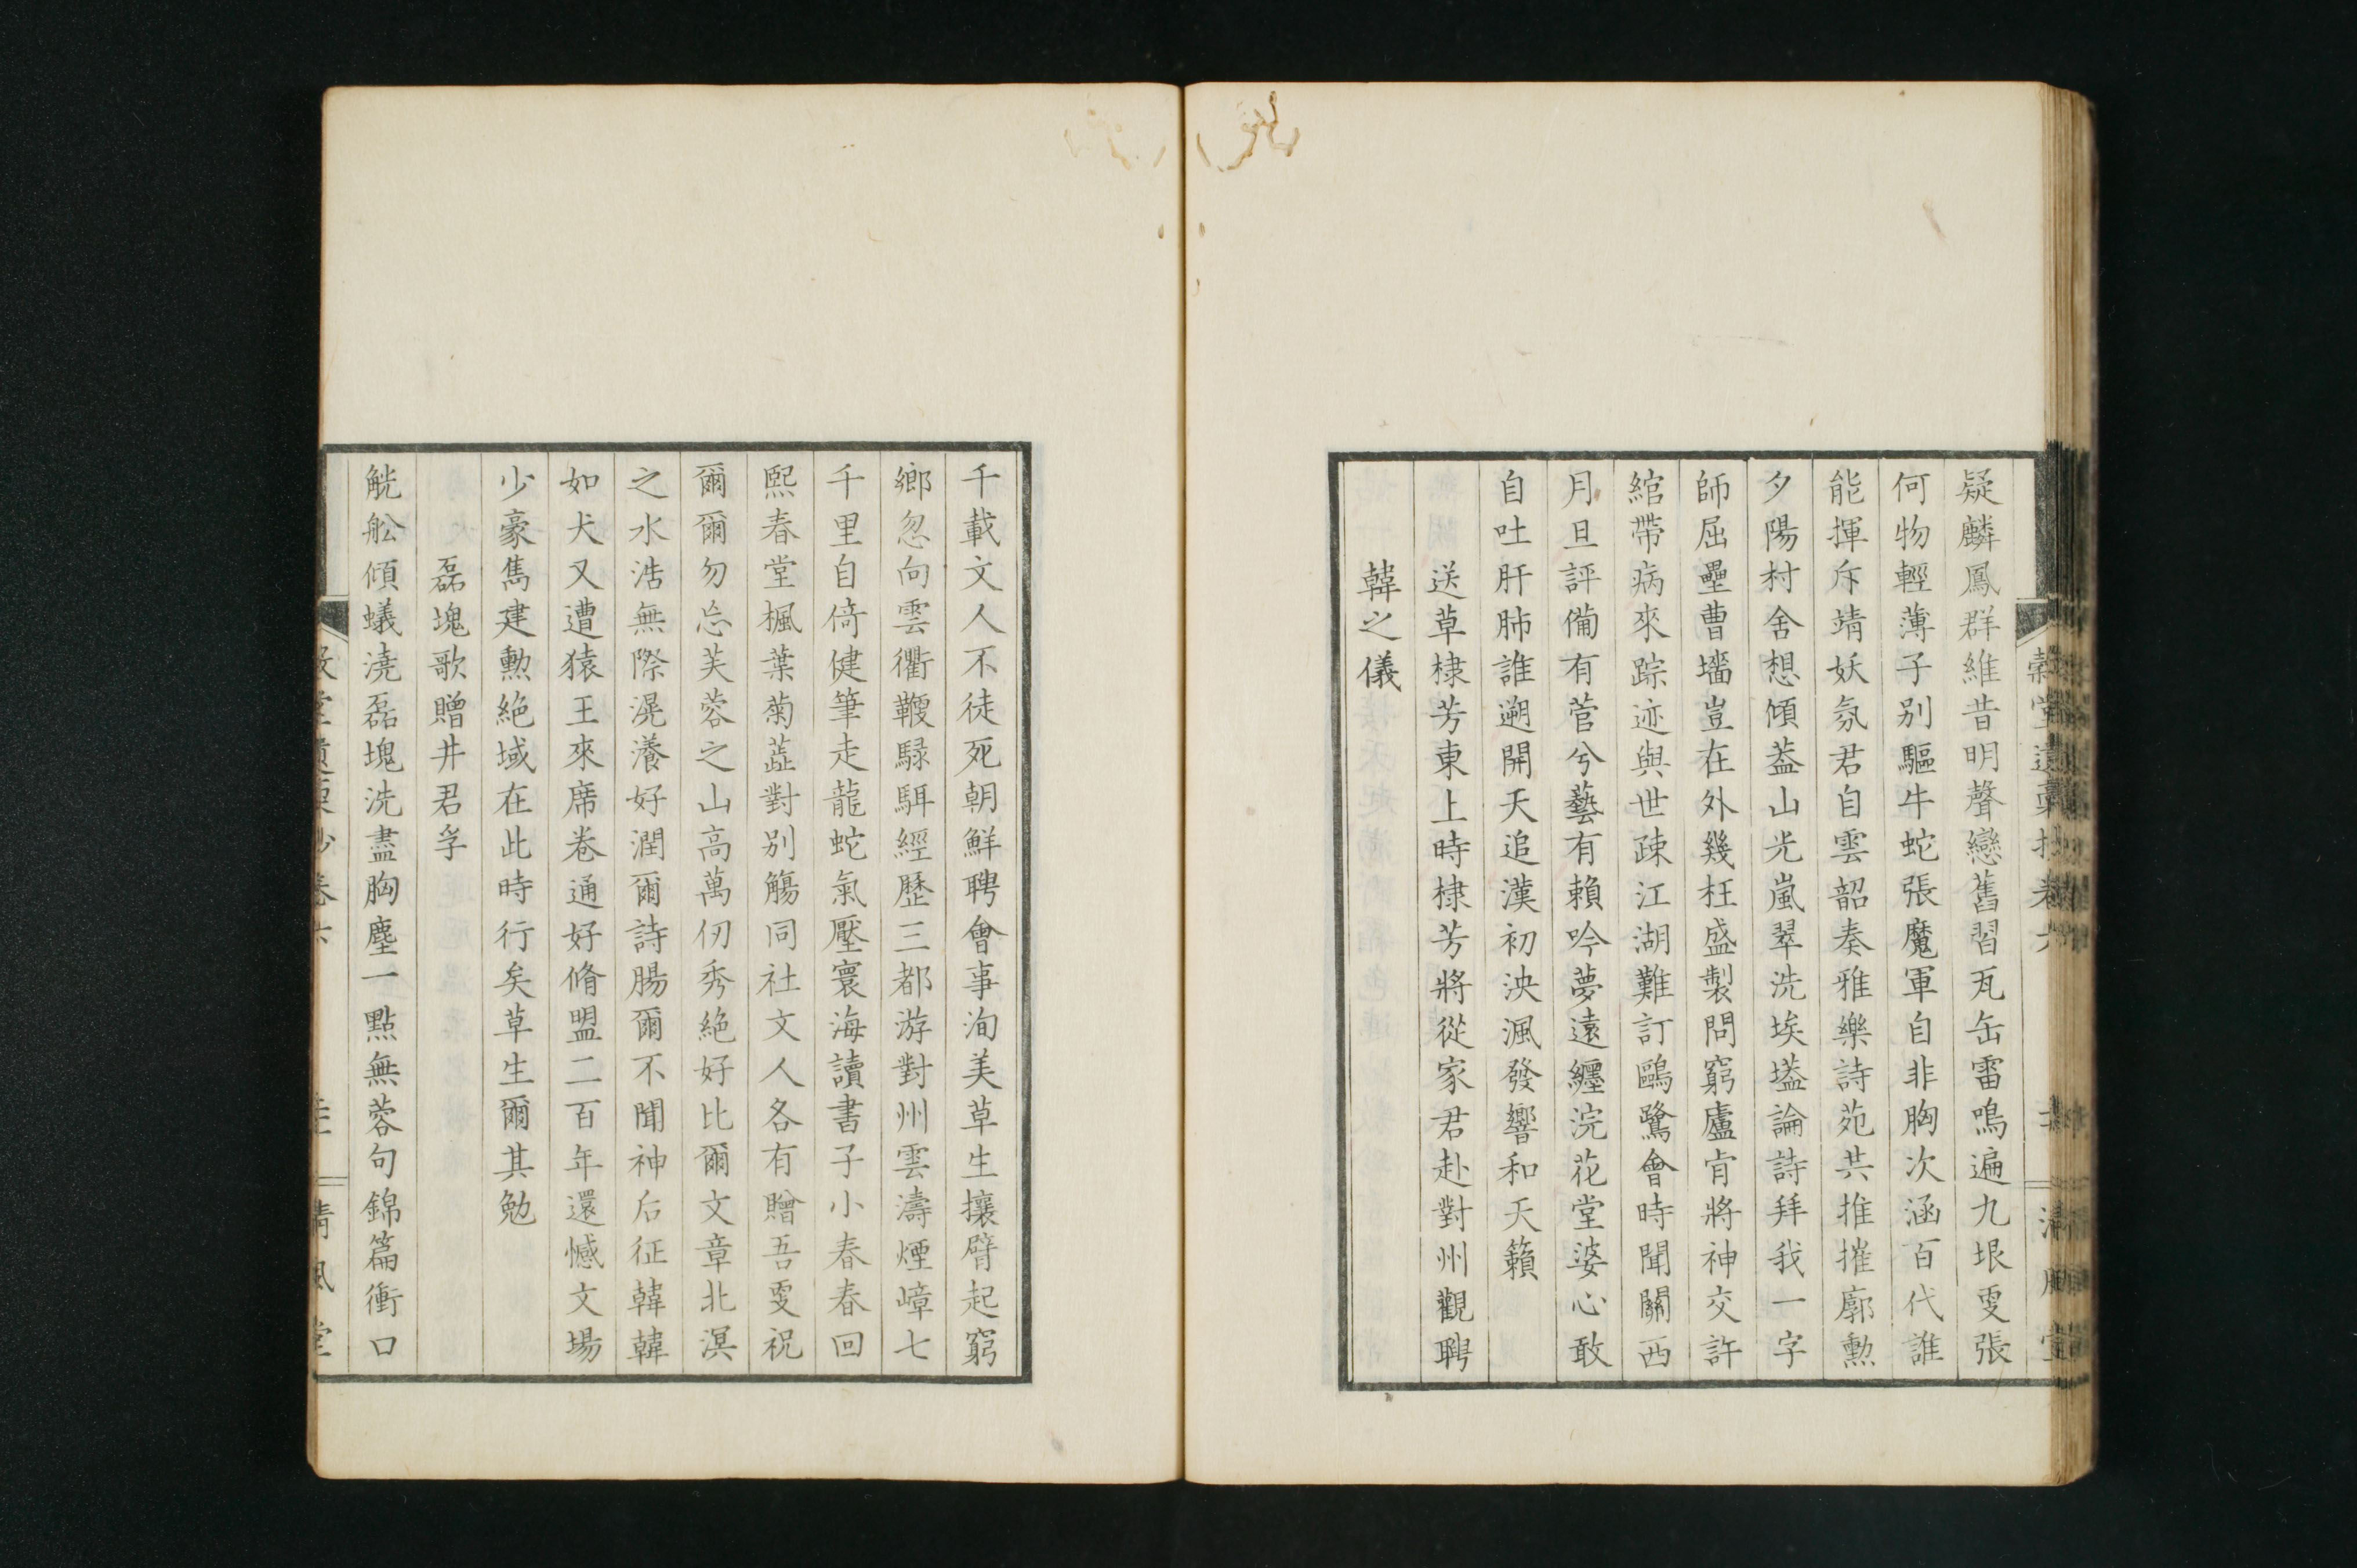 疑麟鳳群維昔明聲戀舊習瓦缶雷鳴遍九垠雯張
何物輕薄子別驅牛蛇張魔軍自非胸次涵百代誰
能揮斥靖妖氛君自雲韶奏雅樂詩苑共推摧廓勲
夕陽村舍想傾葢山光嵐翠洗埃壒論詩拜我一字
師屈壘曹墻豈在外幾枉盛製問窮廬肯將神交許
綰帶病來踪迹與世疎江湖難訂鷗鷺會時聞關西
月旦評備有菅兮藝有賴吟夢遠纒浣花堂婆心敢
自吐肝肺誰遡開天追漢初泱渢發響和天籟
送草棣芳東上時棣芳將從家君赴對州觀聘
韓之儀
千載文人不徒死朝鮮聘會事洵美草生攘臂起窮
鄉忽向雲衢鞭騄駬經歷三都游對州雲濤煙嶂七
千里自倚健筆走龍蛇氣壓寰海讀書子小春春回
熙春堂楓葉菊蕋對別觴同社文人各有贈吾雯祝
爾爾勿忘芙蓉之山高萬仞秀絶好比爾文章北溟
之水浩無際滉瀁好潤爾詩腸爾不聞神后征韓韓
如犬又遭猿王來席卷通好脩盟二百年還憾文場
少豪雋建勲絶域在此時行矣草生爾其勉
磊塊歌贈井君孚
觥舩傾蟻澆磊塊洗盡胸塵一點無蓉句錦篇衝口
堂遺稾抄卷六
清風堂